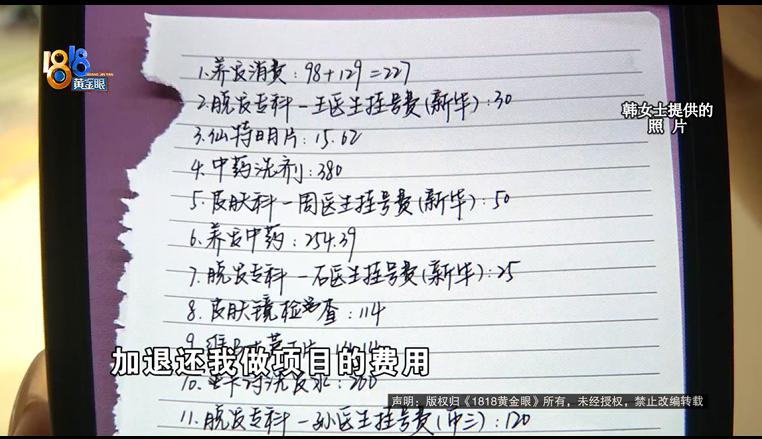 1818
黄金眼
1.养发消费:98+129=227
2.脱发专科-王医生挂号费(新华):30
韩女士提供的
照 片
3.仙特明片:15.62
4.中药洗剂:380
5.皮肤科-周医生挂号费(新华):50
6.养发中药:254.39
7.脱发专科-石医生挂号费(新华):25
8.皮肤镜检查:114
9.
加退还我做项目的费用
10.
声明:版权归《1818黄金眼》所有,未经授权,禁止改编转载
11.脱发专科-孙医生挂号费(中三):120